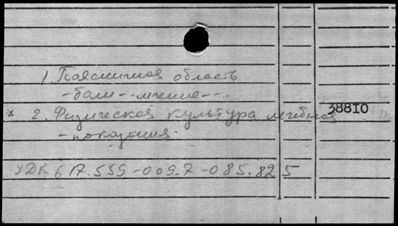 1. Поясничная область
- боли -- лечение -- .
* 2. Физическая культура лечебная 38810
- показания.
УДК 617.559-009.7-085.825